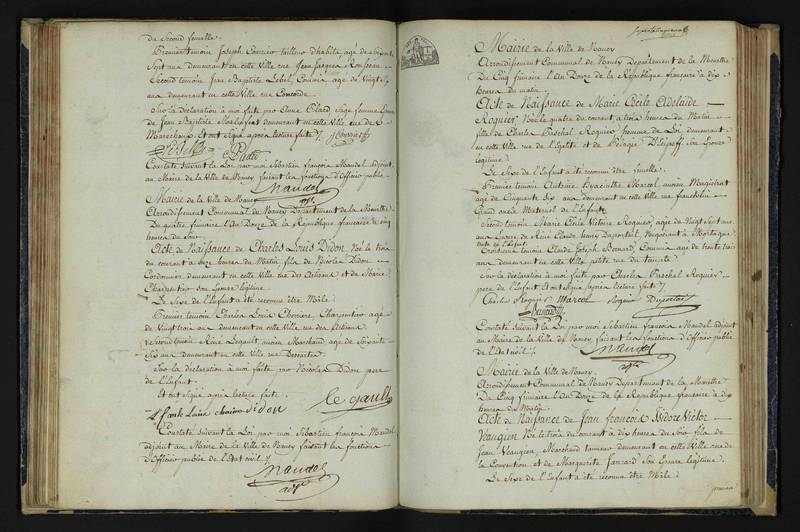 du Second femelle.
Premier témoin Joseph Courrier tailleur d'habits, agé de soixante
Sept ans demeurant en cette Ville rue Jean Jacques Rousseau
Second témoin Jean Baptiste Lebel, Commis, agé de Vingt
ans demeurant en cette Ville rue Concorde
Sur la déclaration à moi faite par Anne Sage femme
de Jean Baptiste demeurant en cette Ville rue des
Maréchaux. Et ont Signé après lecture faite ./.
Constaté suivant la Loi par moi Sébastien françois Mandel, adjoint
au Maire de la Ville de Nancy, faisant les fonctions d'Officier public
Mandel
adj.
Mairie de la Ville de Nancy
Arrondissement Communal de Nancy Département de la Meurthe
Du quatre frimaire l'An Douze de la République française à cinq
heures du Soir
Acte de Naissance de Charles Louis Didon Né le trois
du courant à onze heures du Matin fils de Nicolas Didon
Cordonnier demeurant en cette Ville rue des Artisans et de Marie
Charpentier son Epouse légitime
Le Sexe de l'Enfant a été reconnu être Mâle.
Premier témoin Charles Louis Charpentier agé
de Vingt trois ans demeurant en cette Ville rue des Artisans
Second témoin René Legault, Marchand agé de Soixante
Six ans demeurant en cette Ville rue Descartes
Sur la déclaration à moi faite par Nicolas Didon pere
de l'Enfant
Et ont Signé après lecture faite.
Louis Didon le gault
Constaté suivant la Loi par moi Sébastien françois Mandel
adjoint au Maire de la Ville de Nancy faisant les fonctions
d'Officier public de l'Etat civil ./.
Mandel
adj.
Mairie de la Ville de Nancy
Arrondissement Communal de Nancy Département de la Meurthe
Du Cinq frimaire l'An Douze de la République française à dix
heures du matin
Acte de Naissance de Marie Cécile Adelaide
Roquier Née le quatre du courant à trois heures du Matin
fille de Charles Paschal Roquier homme de Loi, demeurant
en cette Ville rue de l'Egalité et de Pélagie son Epouse
légitime
Le Sexe de l'Enfant a été reconnu être femelle.
Premier témoin Antoine Hyacinthe Marcol, ancien Magistrat
agé de Cinquante Six ans demeurant en cette Ville rue franklin
Grand oncle Maternel de l'Enfant
Second témoin Marie Cécile Victoire Roquier, agée de Vingt Sept ans
Epouse de René Claude henry Duportail, Négociant à Mortagne
tante de l'Enfant.
Troisième témoin Claude Joseph Bonard, Commis agé de trente trois
ans demeurant en cette Ville petite rue du
Sur la déclaration à moi faite par Charles Paschal Roquier
pere de l'Enfant et ont signé après lecture faite ./.
Charles Roquier Marcol Roquier Duportail
Constaté suivant la Loi par moi Sébastien françois Mandel adjoint
au Maire de la Ville de Nancy faisant les fonctions d'Officier public
de l'Etat civil ./.
Mandel
adj.
Mairie de la Ville de Nancy.
Arrondissement Communal de Nancy Département de la Meurthe
Du Cinq frimaire l'An Douze de la République française à dix
heures du Matin
Acte de Naissance de Jean françois Isidore Victor
Vaugien Né le trois du courant à dix heures du Soir fils de
Jean Vaugien, Marchand tanneur demeurant en cette Ville rue de
la Convention et de Marguerite son Epouse légitime.
Le Sexe de l'Enfant a été reconnu être Mâle.